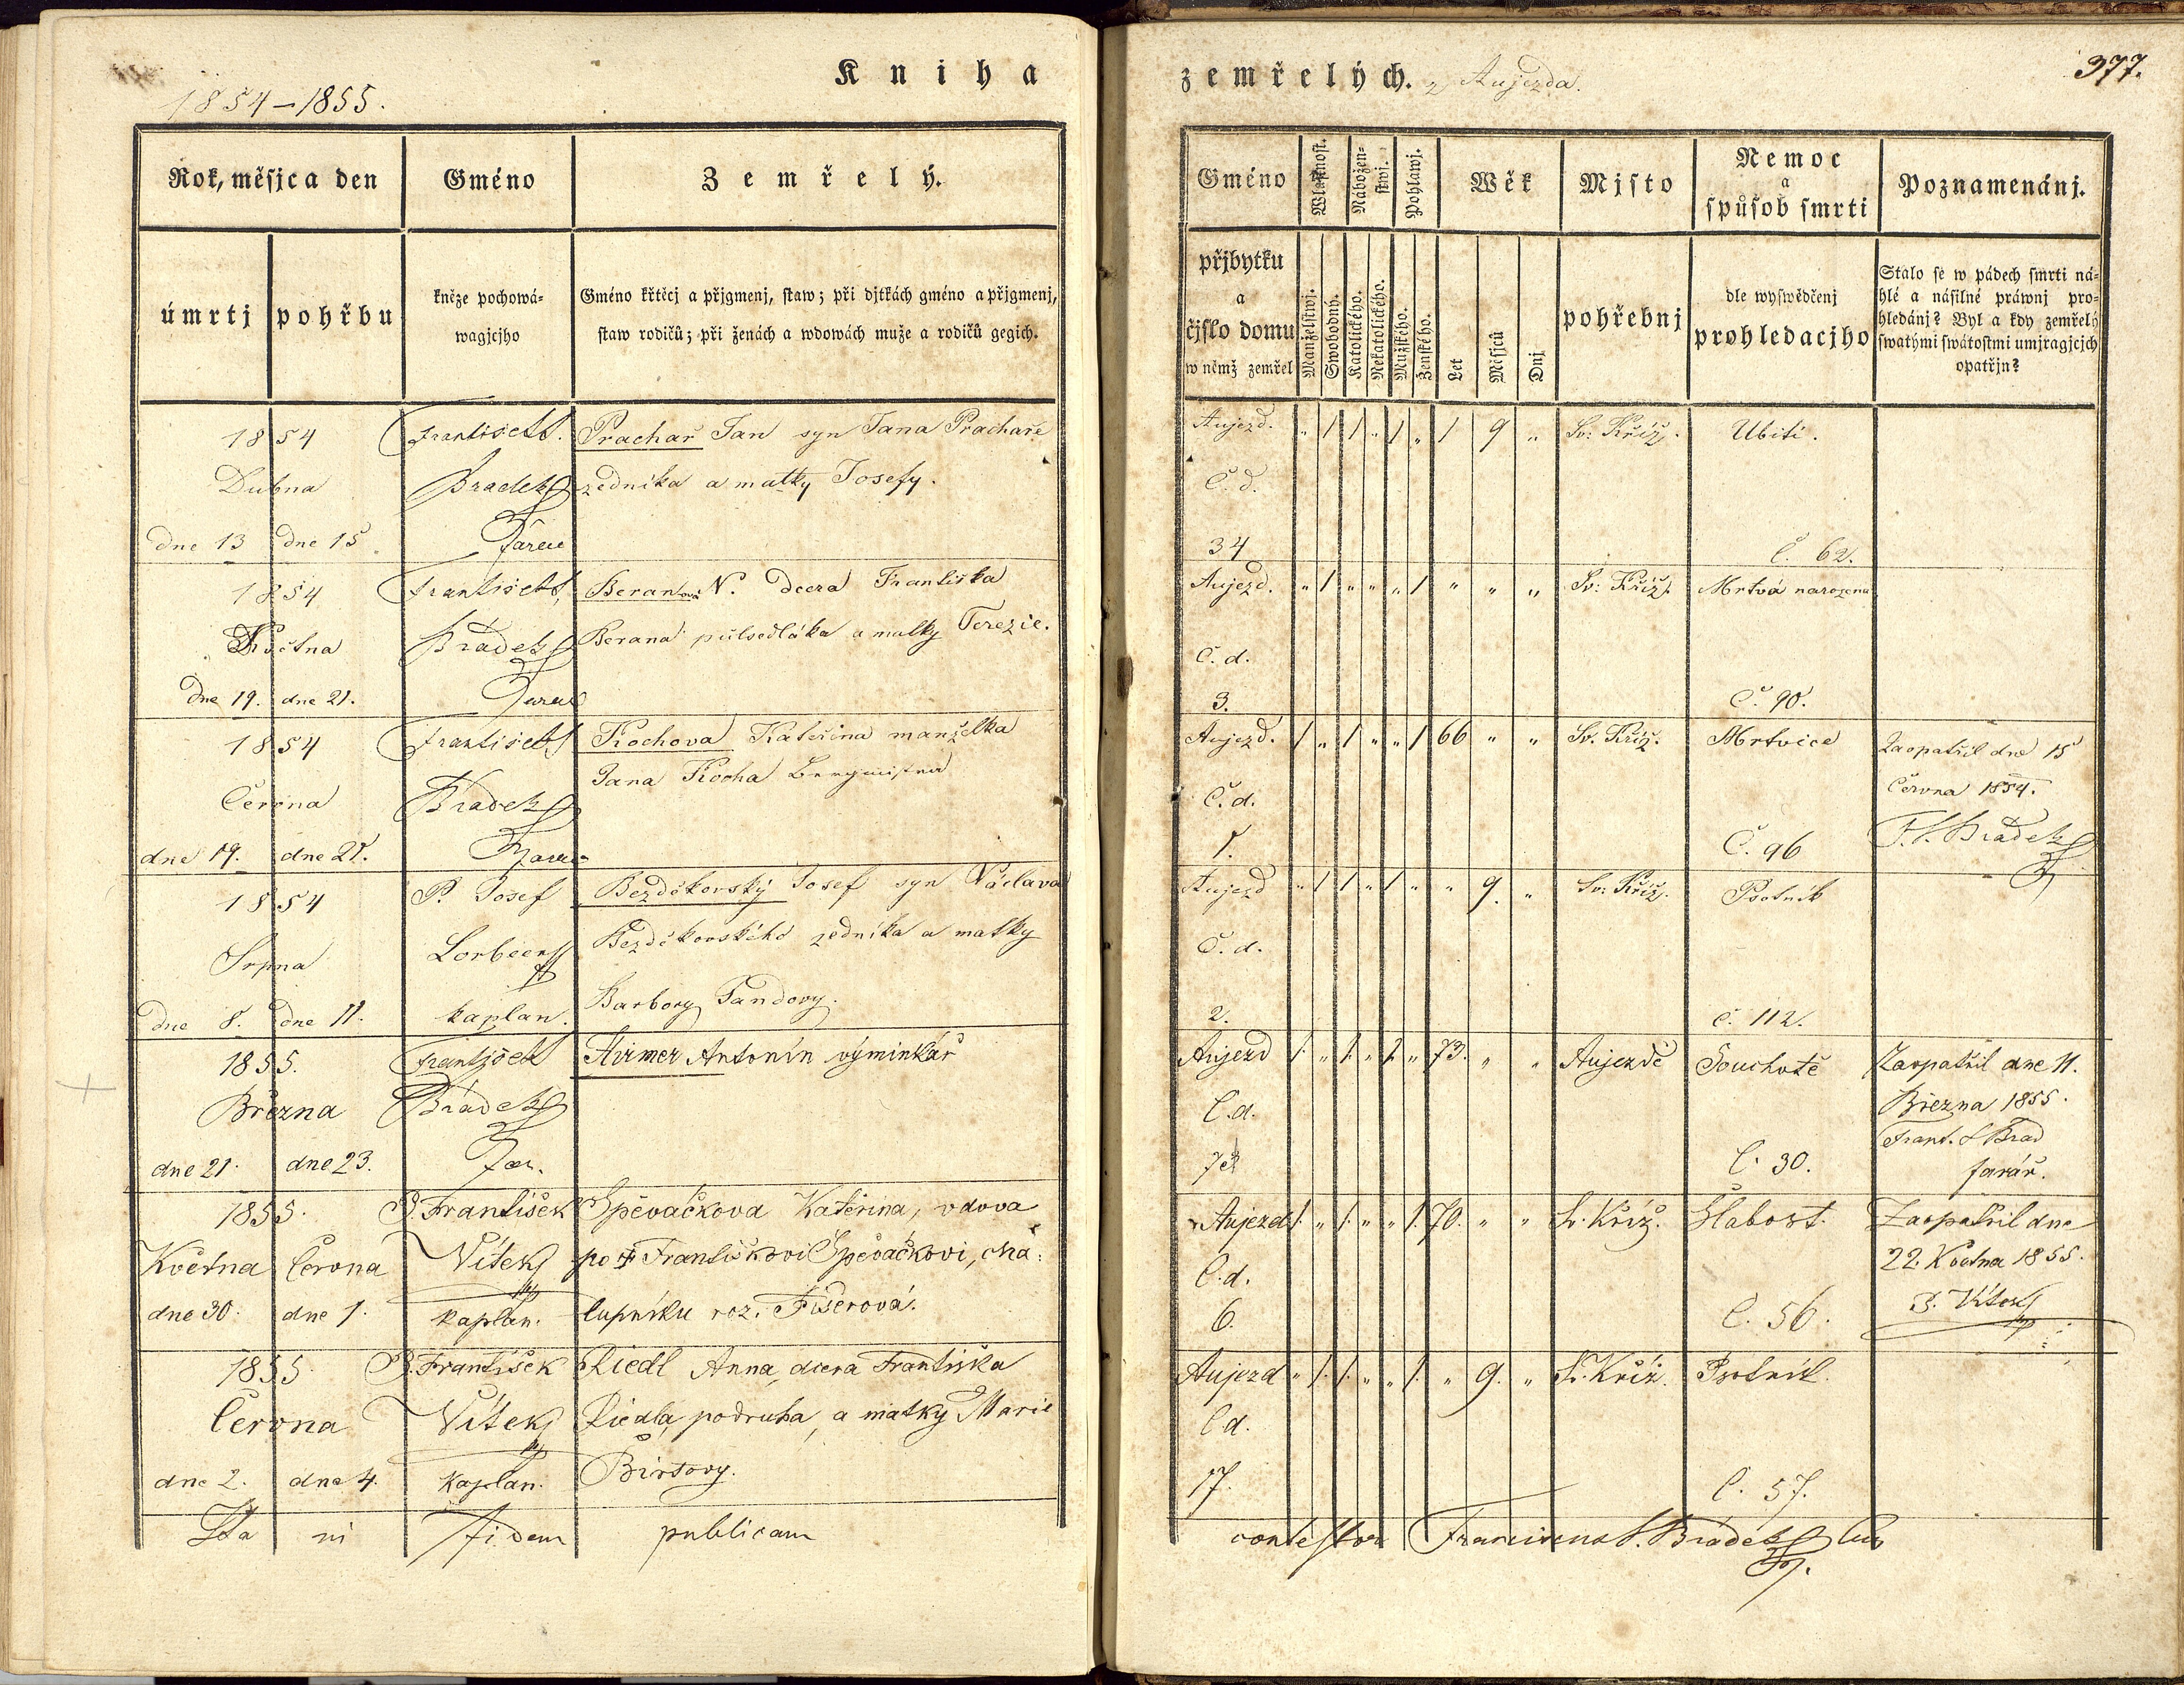 Kniha
1854–1855.
Rok, měsjc a den
Gméno
Zemřelý.
úmrtj
pohřbu
kněze pochowá-
wagjcjho
Gméno křtěcj a přjgmenj, staw; při djtkách gméno a přjgmenj,
staw rodičů; při ženách a wdowách muže a rodičů gegich.
1854
Dubna
dne 13 dne 15
František
Bradek
Farář
Prachař Jan syn Jana Prachaře
zedníka a matky Josefy.
1854
Května
Dne 19. dne 21.
František
Bradek
Beranova N. dcera Františka
Berana půlsedláka a matky Terezie.
1854
Června
dne 19. dne 21.
František
Bradek
Kochova Kateřina manželka
Jana Kocha
1854
Srpna
Dne 8. dne 11.
P. Josef
Lorbeer
kaplan.
Bezděkovský Josef syn Václava
Bezděkovského zedníka a matky
Barbory Pandovy.
1855.
Března
dne 21. dne 23.
Frantjšek
Brádek
Far.
Antonín výminkář
1855.
Května Června
dne 30. dne 1.
P. František
Vítek
kaplan.
Spěvačkova Kateřina, vdova
po † Františkovi Spěvačkovi, cha:
lupníku roz. Fišerová.
1855
Června
dne 2. dne 4.
P. František
Vítek
kaplan.
Riedl Anna, dcera Františka
Riedla, podruha, a matky Marie
Ita in fidem publicam
zemřelých. z Aujezda.
377.
Gméno
Wlastnost.
Nábožen-
stwj.
Pohlawj.
Wěk
Mjsto
Nemoc
a
spůsob smrti
Poznamenánj.
přjbytku
a
čjslo domu
w němž zemřel
Manželstwj.
Swobodný.
Katolického.
Nekatolického.
Mužského.
Ženského.
Let
Měsjců
Dnj
pohřebnj
dle wyswědčenj
prohledacjho
Stalo se w pádech smrti ná-
hlé a násilné práwnj pro-
hledánj? Byl a kdy zemřelý
swatými swátostmi umjragjcjch
opatřjn?
Aujezd. „ 1 1 „ 1 „ 1 9 „ Sv: Kříž. Ubití.
Č. d.
34
Č. 62.
Aujezd. „ 1 „ „ „ 1 „ „ „ Sv: Kříž. Mrtvá narozena
Č. d.
3.
Č. 90.
Aujezd. 1 „ 1 „ „ 1 66 „ „ Sv. Kříž. Mrtvice Zaopatřil dne 15
Června 1854.
Č. d.
1.
Č. 96
F. S. Bradek
Aujezd „ 1 1 „ 1 „ „ 9. „ Sv: Kříž. Psotník
Č. d.
2.
Č. 112.
Aujezd 1. „ 1. „ 1. „ 73. „ „ Aujezdě Souchotě Zaopatřil dne 11.
Března 1855.
Č. d.
Č. 30.
Frant. S. Brad
farář.
Aujezd 1. „ 1. „ „ 1. 70. „ „ Sv. Kříž. Slabost. Zaopatřil dne
22. Května 1855.
Č. d.
6.
Č. 56.
P. Vítek
Aujezd „ 1. 1. „ „ 1. „ 9. „ Sv. Kříž. Psotník.
Č d.
17.
Č. 57.
contestor Franciscus S. Brádek